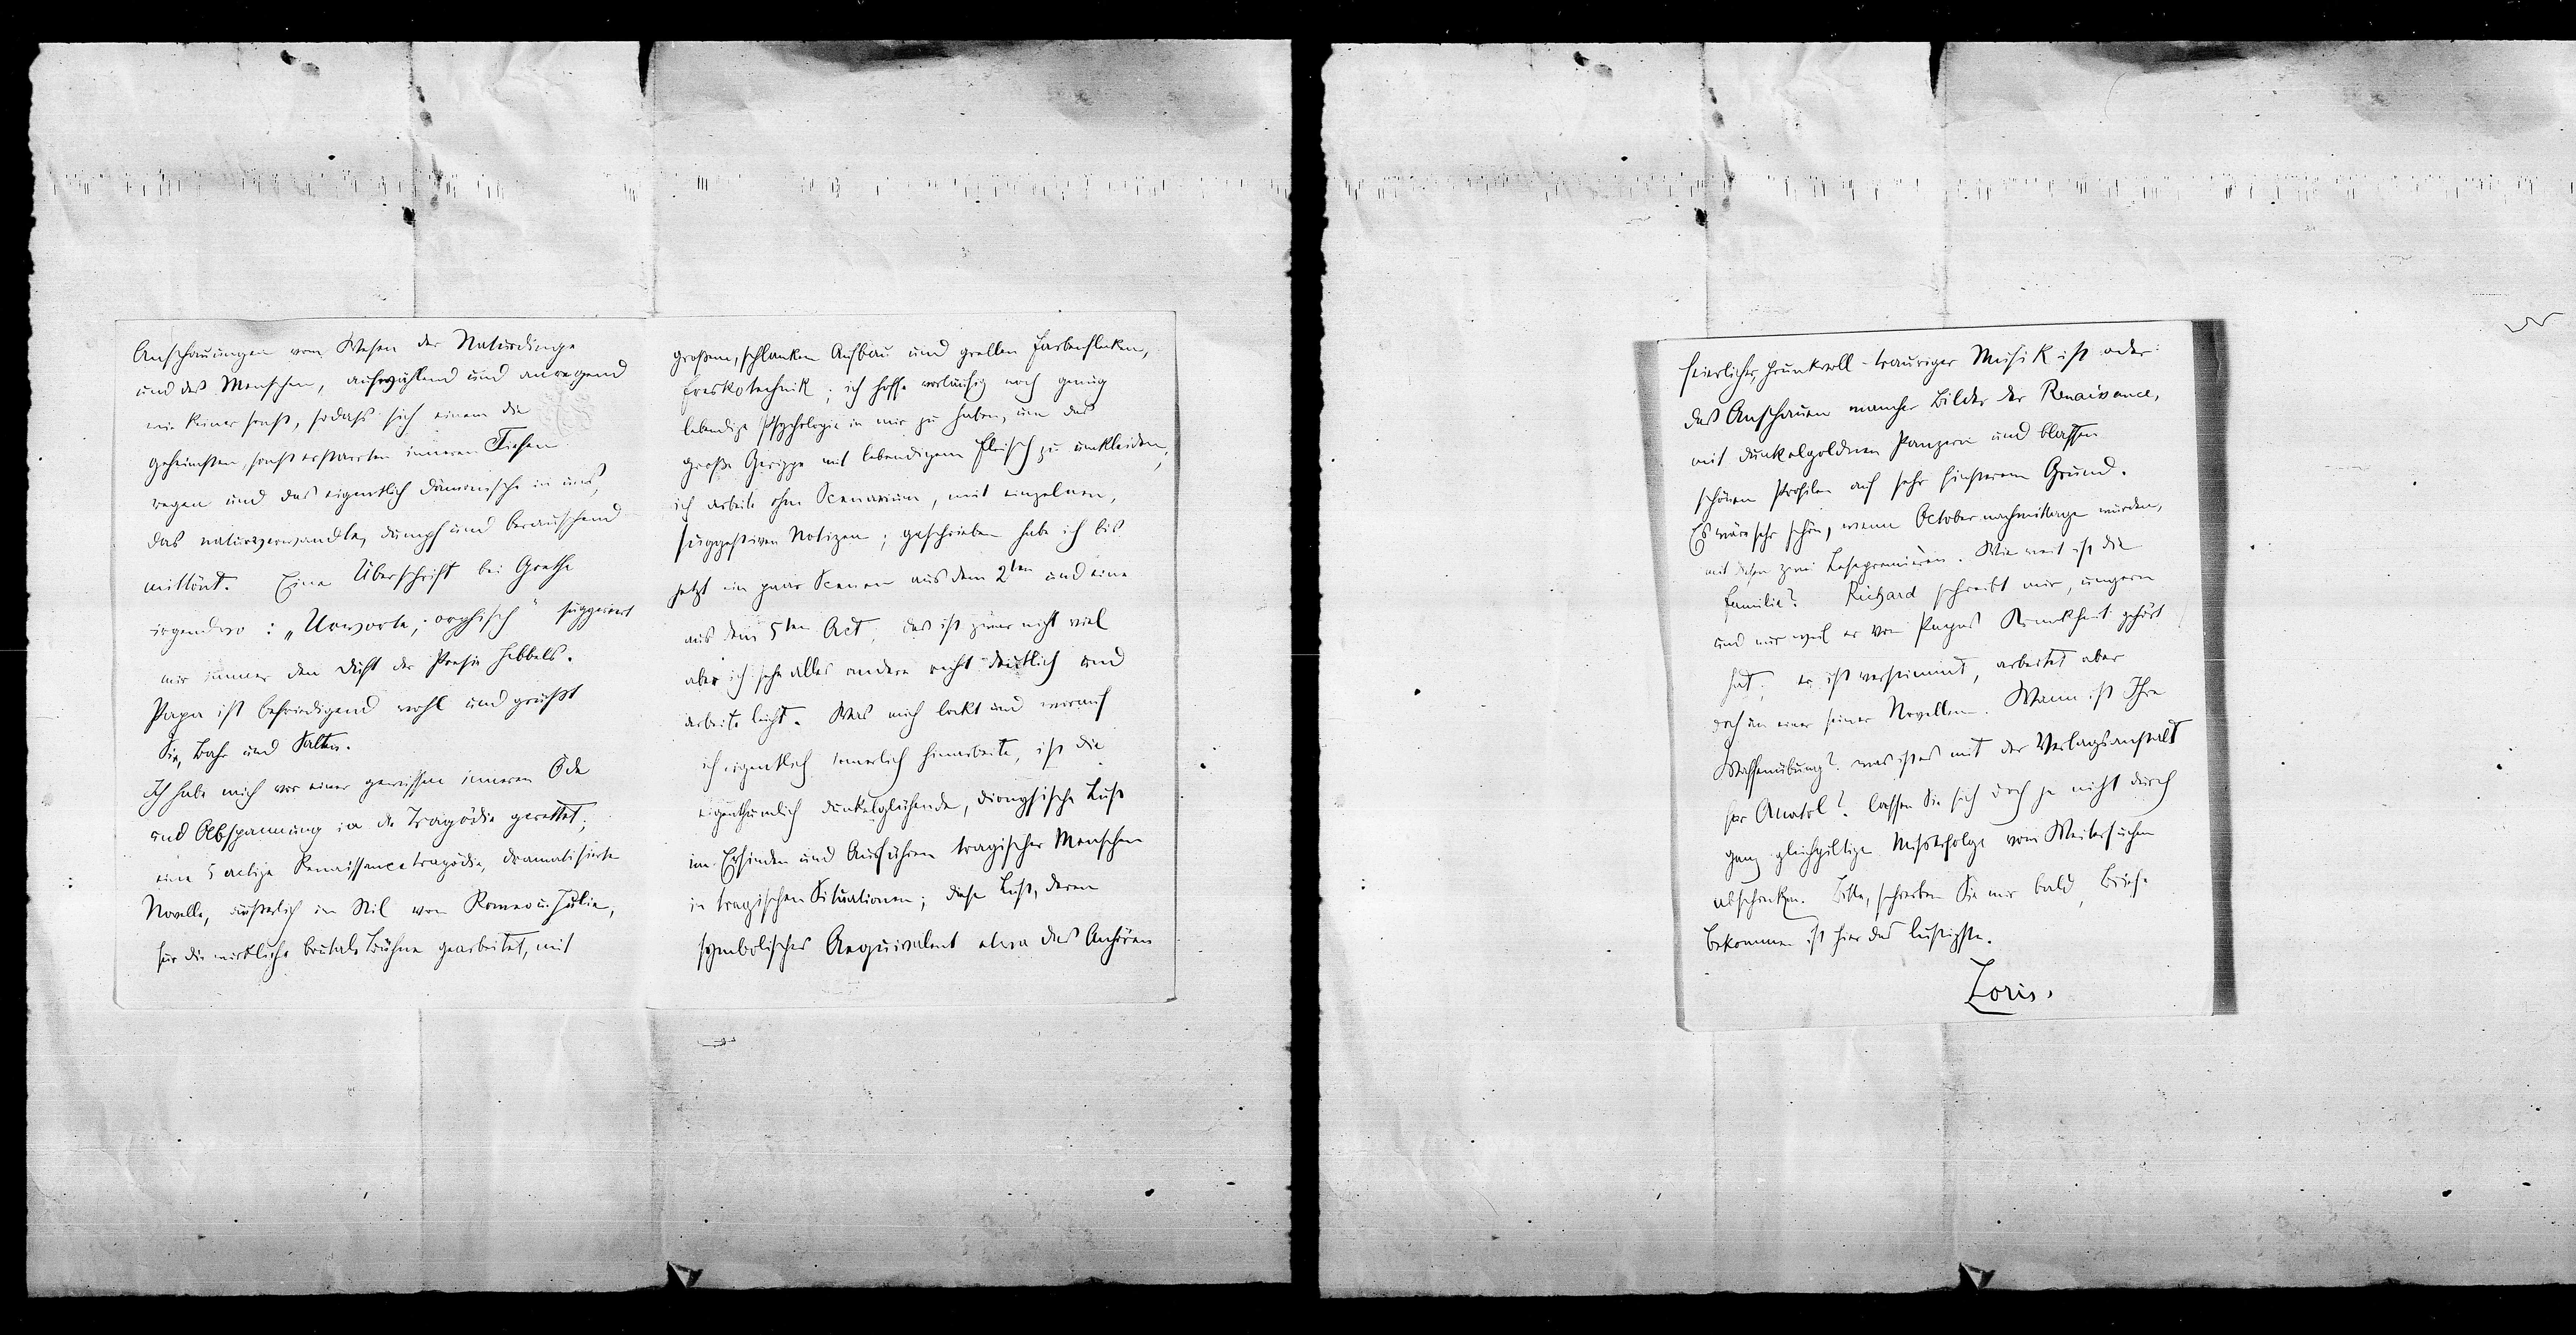 Anschauungen vom Wesen der Naturdinge
und des Menschen, aufwühlend und anregend
wie keiner sonst, sodaß sich einem die
geheimsten, sonst erstarrten inneren Tiefen
regen und das eigentlich dämonische in uns,
das naturverwandte, dumpf und berauschend
mittönt. Eine Überschrift bei Goethe
irgendwo: „Urworte; orphisch" suggeriert
mir immer den Duft der Poesie Hebbels.
Papa ist befriedigend wohl und grüßt
Sie, Bahr und Salten.
Ich habe mich vor einer gewissen inneren Öde
und Abspannung in die Tragödie gerettet;
eine 5 actige Renaissancetragödie, dramatisierte
Novelle, äußerlich im Stil von Romeo u. Julie,
für die wirkliche brutale Bühne gearbeitet, mit
großem, schlanken Aufbau und grellen Farbenflecken,
Freskotechnik; ich hoffe vorläufig noch genug
lebendige Psychologie in mir zu haben, um das
große Gerippe mit lebendigem Fleisch zu umkleiden,
ich arbeite ohne Scenarium, mit einzelnen,
suggestiven Notizen; geschrieben habe ich bis
jetzt ein paar Scenen aus dem 2ten und eine
aus dem 5ten Act; das ist zwar nicht viel
aber ich sehe alles andere recht deutlich und
arbeite leicht. Was mich lockt und worauf
ich eigentlich innerlich hinarbeite, ist die
eigenthümlich dunkelglühende, dionysische Lust
im Erfinden und Ausführen tragischer Menschen
in tragischen Situationen; diese Lust, deren
symbolisches Aequivalent etwa das Anhören
feierlicher, prunkvoll-trauriger Musik ist oder
das Anschauen mancher Bilder der Renaissance,
mit dunkelgoldnen Panzern und blassen
schönen Profilen auf sehr finsterem Grund.
Es wäre sehr schön, wenn Octobernachmittage würden,
mit diesen zwei Lesepremièren. Wie weit ist die
Familie? Richard schreibt mir, ungern
und nur weil er von Papas Krankheit gehört
hat; er ist verstimmt, arbeitet aber
doch an einer seiner Novellen. Wann ist Ihre
Waffenübung? was ist es mit der Verlagsanstalt
für Anatol? lassen Sie sich doch ja nicht durch
ganz gleichgiltige Mißerfolge vom Weitersuchen
abschrecken. Bitte, schreiben Sie mir bald, Briefe
bekommen ist hier das lustigste.
Loris.